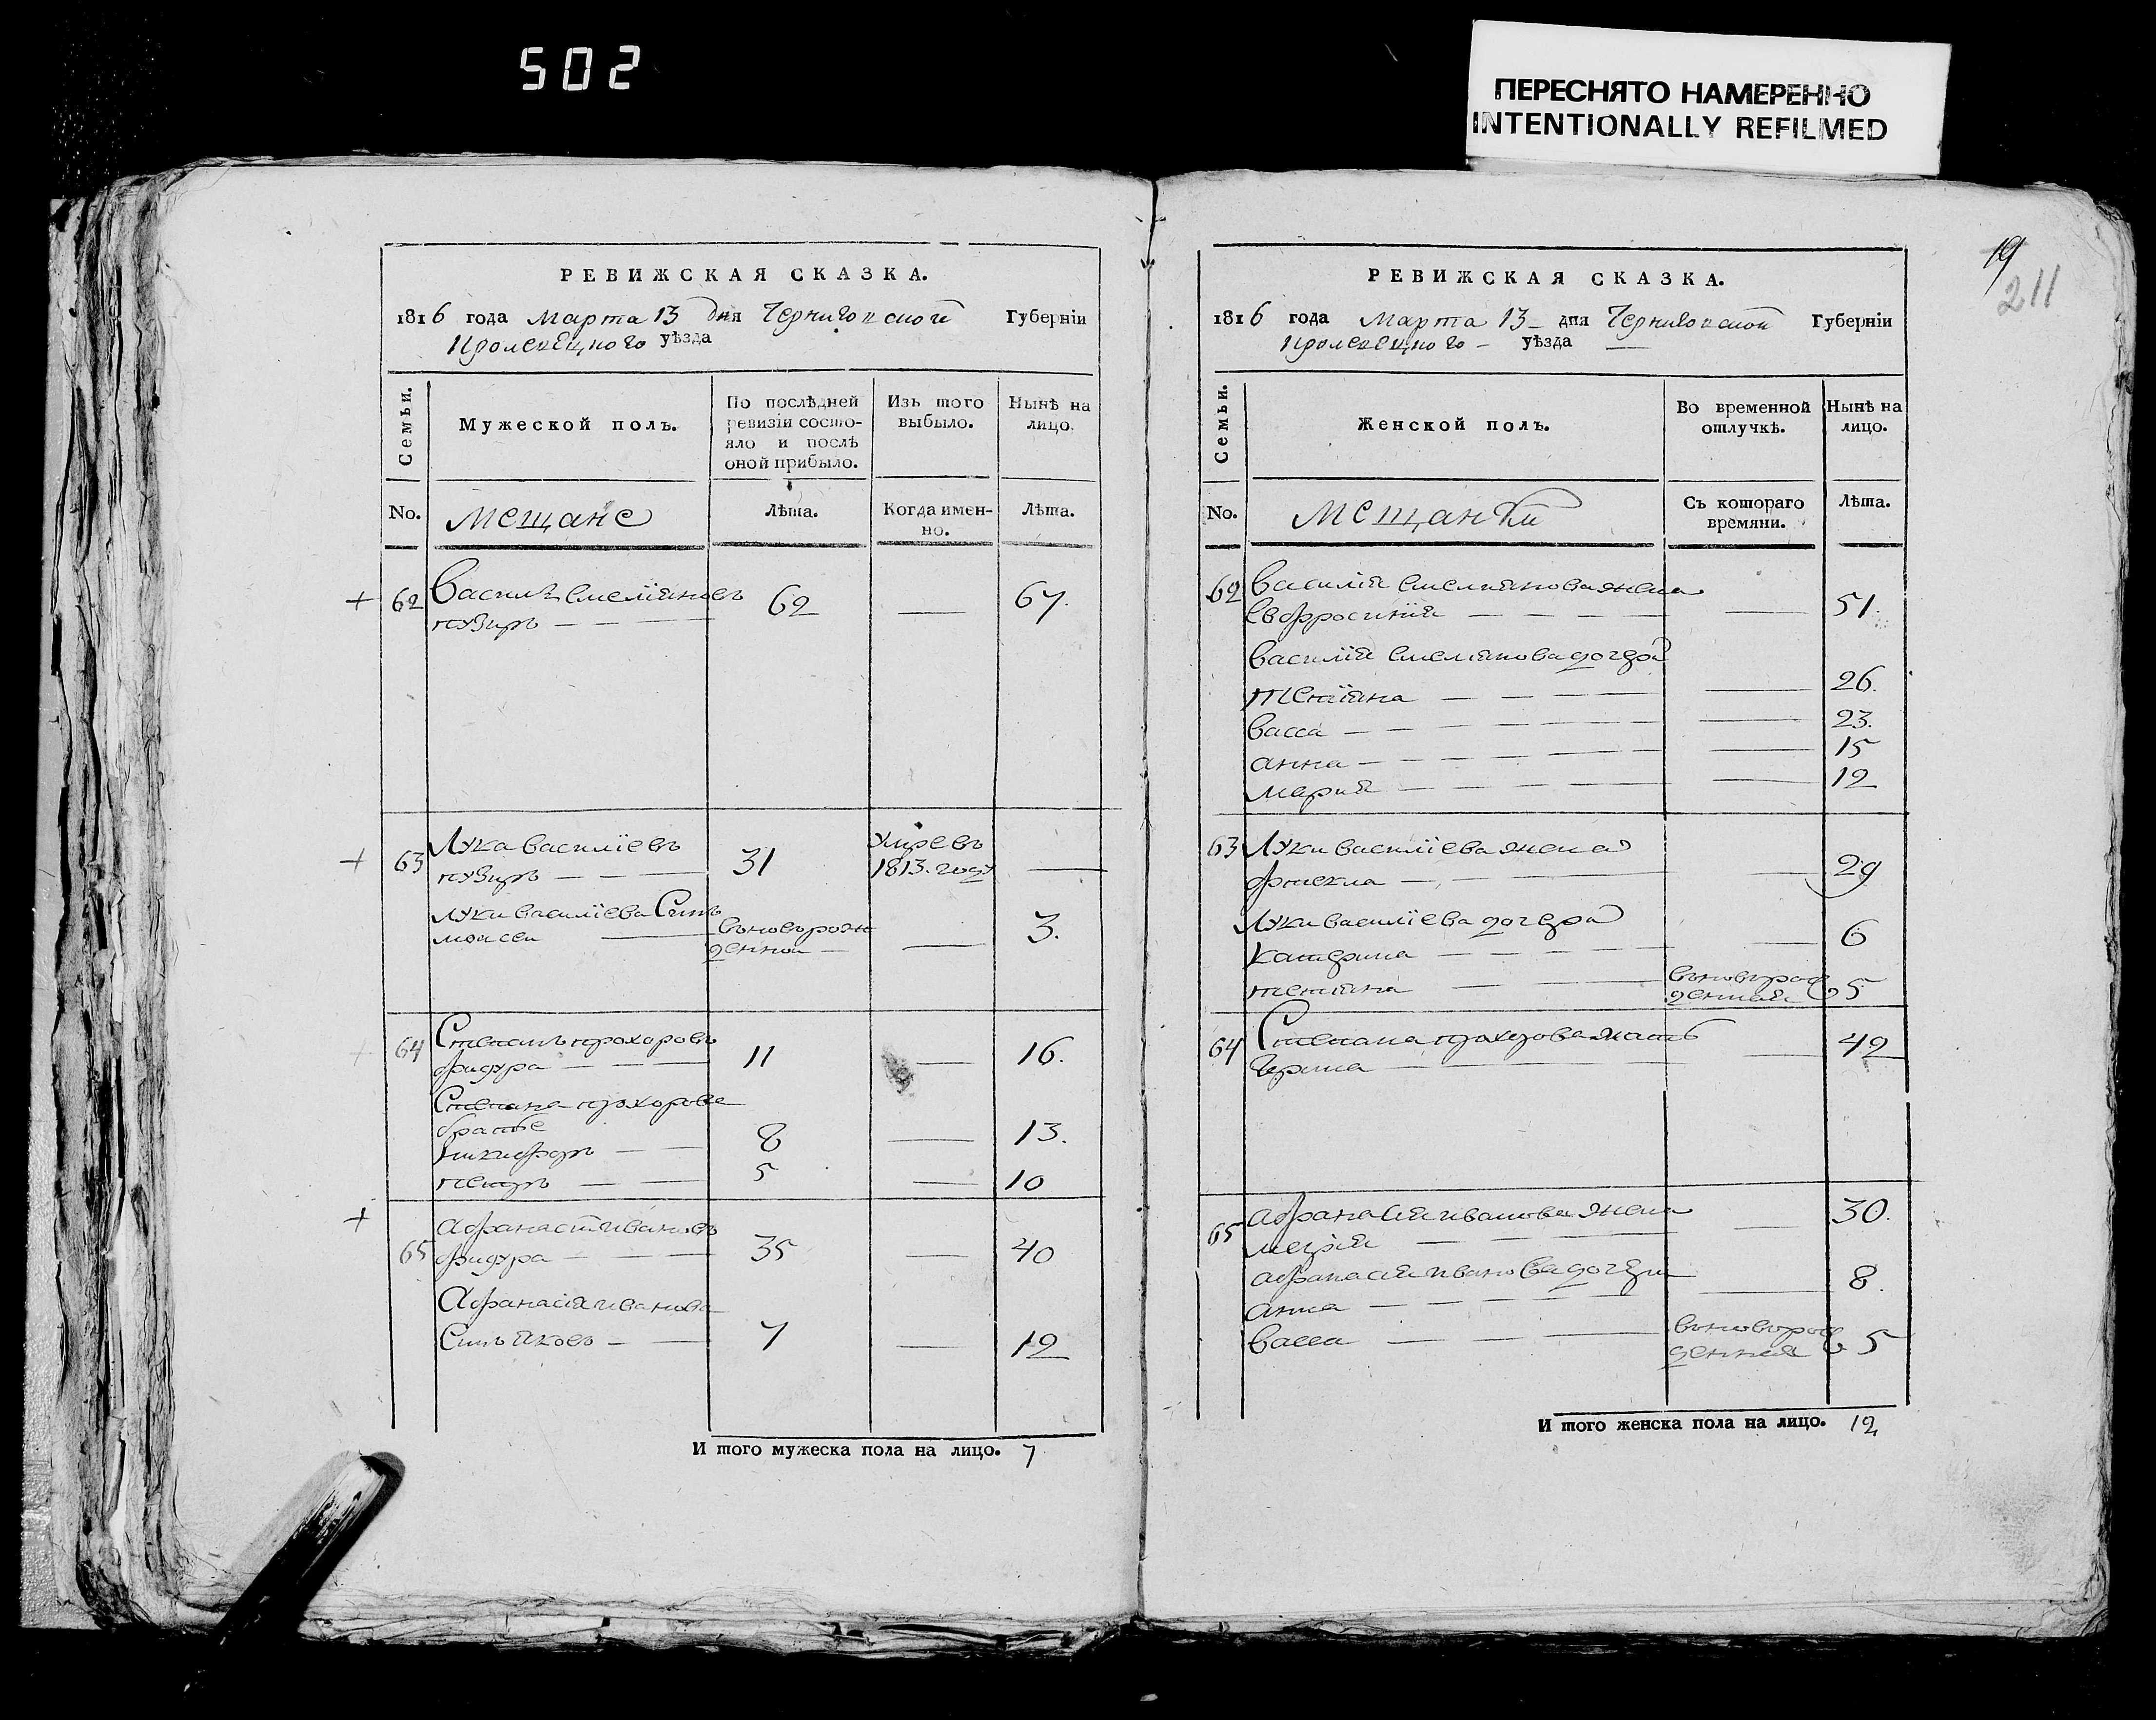 502
ПЕРЕСНЯТО НАМЕРЕННО
INTENTIONALLY REFILMED
РЕВИЖСКАЯ СКАЗКА.
1816 года Марта 13 дня Черниговской Губерніи
Кролевецкого уѣзда
Семьи.
Мужеской полъ.
По послѣдней
ревизіи состо-
яло и послѣ
оной прибыло.
Изъ того
выбыло.
Нынѣ на
лицо.
No. мещане Лѣта. Когда имен-
но. Лѣта.
+ 62 Василь емелїяновъ 62 — 67.
пузиръ
+ 63 Лука василїевъ 31 умре въ
пузиръ 1813. году —
луки василїева Синъ вьноворож
моисей денной — 3.
+ 64 Степанъ прохоровъ
фидура 11 — 16.
Степана прохорова
братье
никифоръ 8 — 13.
петръ 5 — 10
+ 65 афанасій ивановъ
фидура 35 — 40
Афанасїя иванова
Синъ яковъ 7 — 12
И того мужеска пола на лицо. 7
19
211
РЕВИЖСКАЯ СКАЗКА.
1816 года Марта 13 дня Черниговской Губерніи
Кролевецкого уѣзда
Семьи.
Женской полъ.
Во временной
отлучкѣ.
Нынѣ на
лицо.
No. Мещанки Съ котораго
времяни. Лѣта.
62 василїя емелїянова жена
евфросинїя — 51.
василїя емелїянова дочера
тетїяна — 26.
васса — 23.
анна — 15
марїя — 12
63 Луки василїева жена
фтекла — 29
Луки василїева дочера
катерина — 6
тетїяна вьноворож
денная 5
64 Степана прохорова мать
— 42
65 афанасїя иванова жена
марїя — 30.
афанасїя иванова дочери
анна — 8.
васса вьноворож
денная 5
И того женска пола на лицо. 12